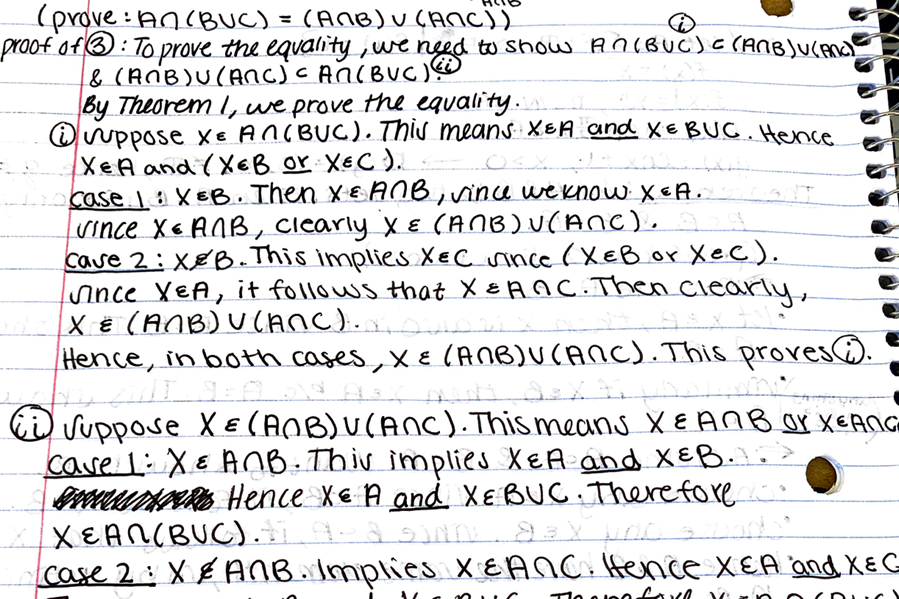 (prove: A∩(B∪C) = (A∩B) ∪ (A∩C))
proof of ③: To prove the equality, we need to show A∩(B∪C) ⊂ (A∩B)∪(A∩C) ⓘ
& (A∩B)∪(A∩C) ⊂ A∩(B∪C). ⓘⓘ
By Theorem 1, we prove the equality.
ⓘ suppose x ∈ A∩(B∪C). This means x∈A and x∈B∪C. Hence
x∈A and (x∈B or x∈C).
case 1: x∈B. Then x∈A∩B, since we know x∈A.
since x∈A∩B, clearly x ∈ (A∩B)∪(A∩C).
case 2: x∉B. This implies x∈C since (x∈B or x∈C).
since x∈A, it follows that x∈A∩C. Then clearly,
x ∈ (A∩B)∪(A∩C).
Hence, in both cases, x ∈ (A∩B)∪(A∩C). This proves ⓘ.
ⓘⓘ suppose x∈(A∩B)∪(A∩C). This means x∈A∩B or x∈A∩C
case 1: x∈A∩B. This implies x∈A and x∈B.
Hence x∈A and x∈B∪C. Therefore
x∈A∩(B∪C).
case 2: x∉A∩B. Implies x∈A∩C. Hence x∈A and x∈C